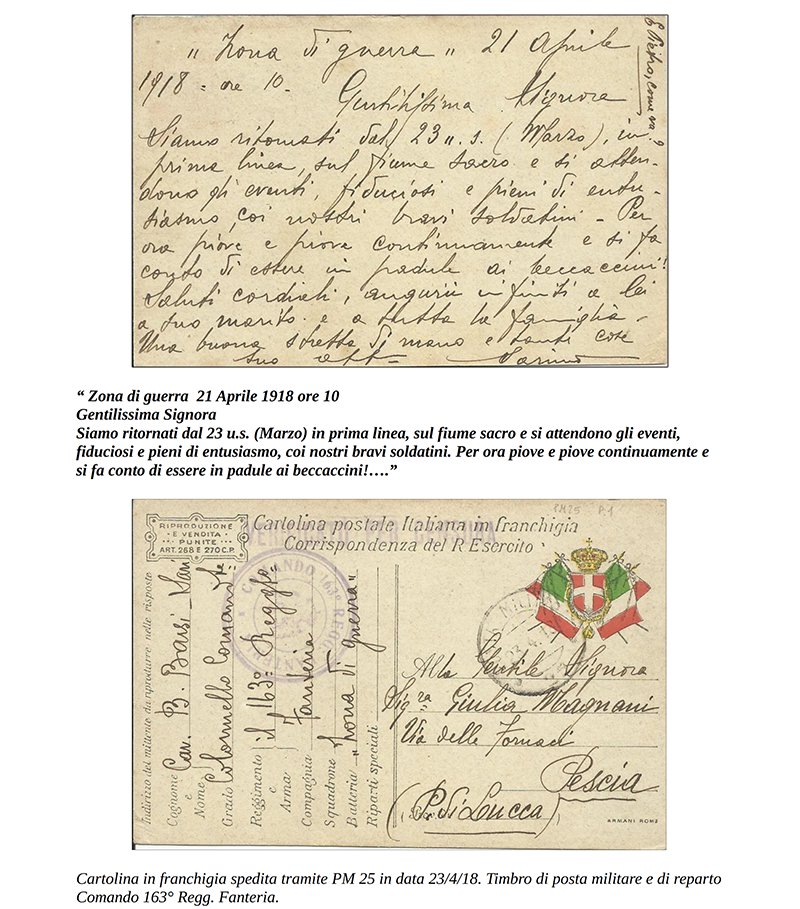 " Zona di guerra " 21 Aprile
1918 - ore 10 -
Gentilissima Signora
Siamo ritornati dal 23 u.s. (Marzo), in
prima linea, sul fiume sacro e si atten-
dono gli eventi, fiduciosi e pieni di entu-
siasmo, coi nostri bravi soldatini - Per
ora piove e piove continuamente e si fa
conto di essere in padule ai beccaccini!
Saluti cordiali, augurii infiniti a lei
a suo marito e a tutta la famiglia -
Una buona stretta di mano e tante cose
suo
E Pietro, come va?
“ Zona di guerra 21 Aprile 1918 ore 10
Gentilissima Signora
Siamo ritornati dal 23 u.s. (Marzo) in prima linea, sul fiume sacro e si attendono gli eventi,
fiduciosi e pieni di entusiasmo, coi nostri bravi soldatini. Per ora piove e piove continuamente e
si fa conto di essere in padule ai beccaccini!….”
PM25 P.1
RIPRODUZIONE
E VENDITA
PUNITE
ART. 268 E 270 C.P.
Cartolina postale Italiana in franchigia
Corrispondenza del R. Esercito
COMANDO 163° REGG.
FANTERIA
Indirizzo del mittente da riprodurre nelle risposte
Cognome e Nome Cav. B. Barsi
Grado Colonnello Comante
Reggimento e Arma il 163° Reggto
Fanteria
Compagnia
Squadrone
Batteria "Zona di guerra"
Riparti speciali
Alla Gentile Signora
Sigra Giulia Magnani
Via delle Fornaci
Pescia
(P. di Lucca)
ARMANI ROMA
Cartolina in franchigia spedita tramite PM 25 in data 23/4/18. Timbro di posta militare e di reparto
Comando 163° Regg. Fanteria.